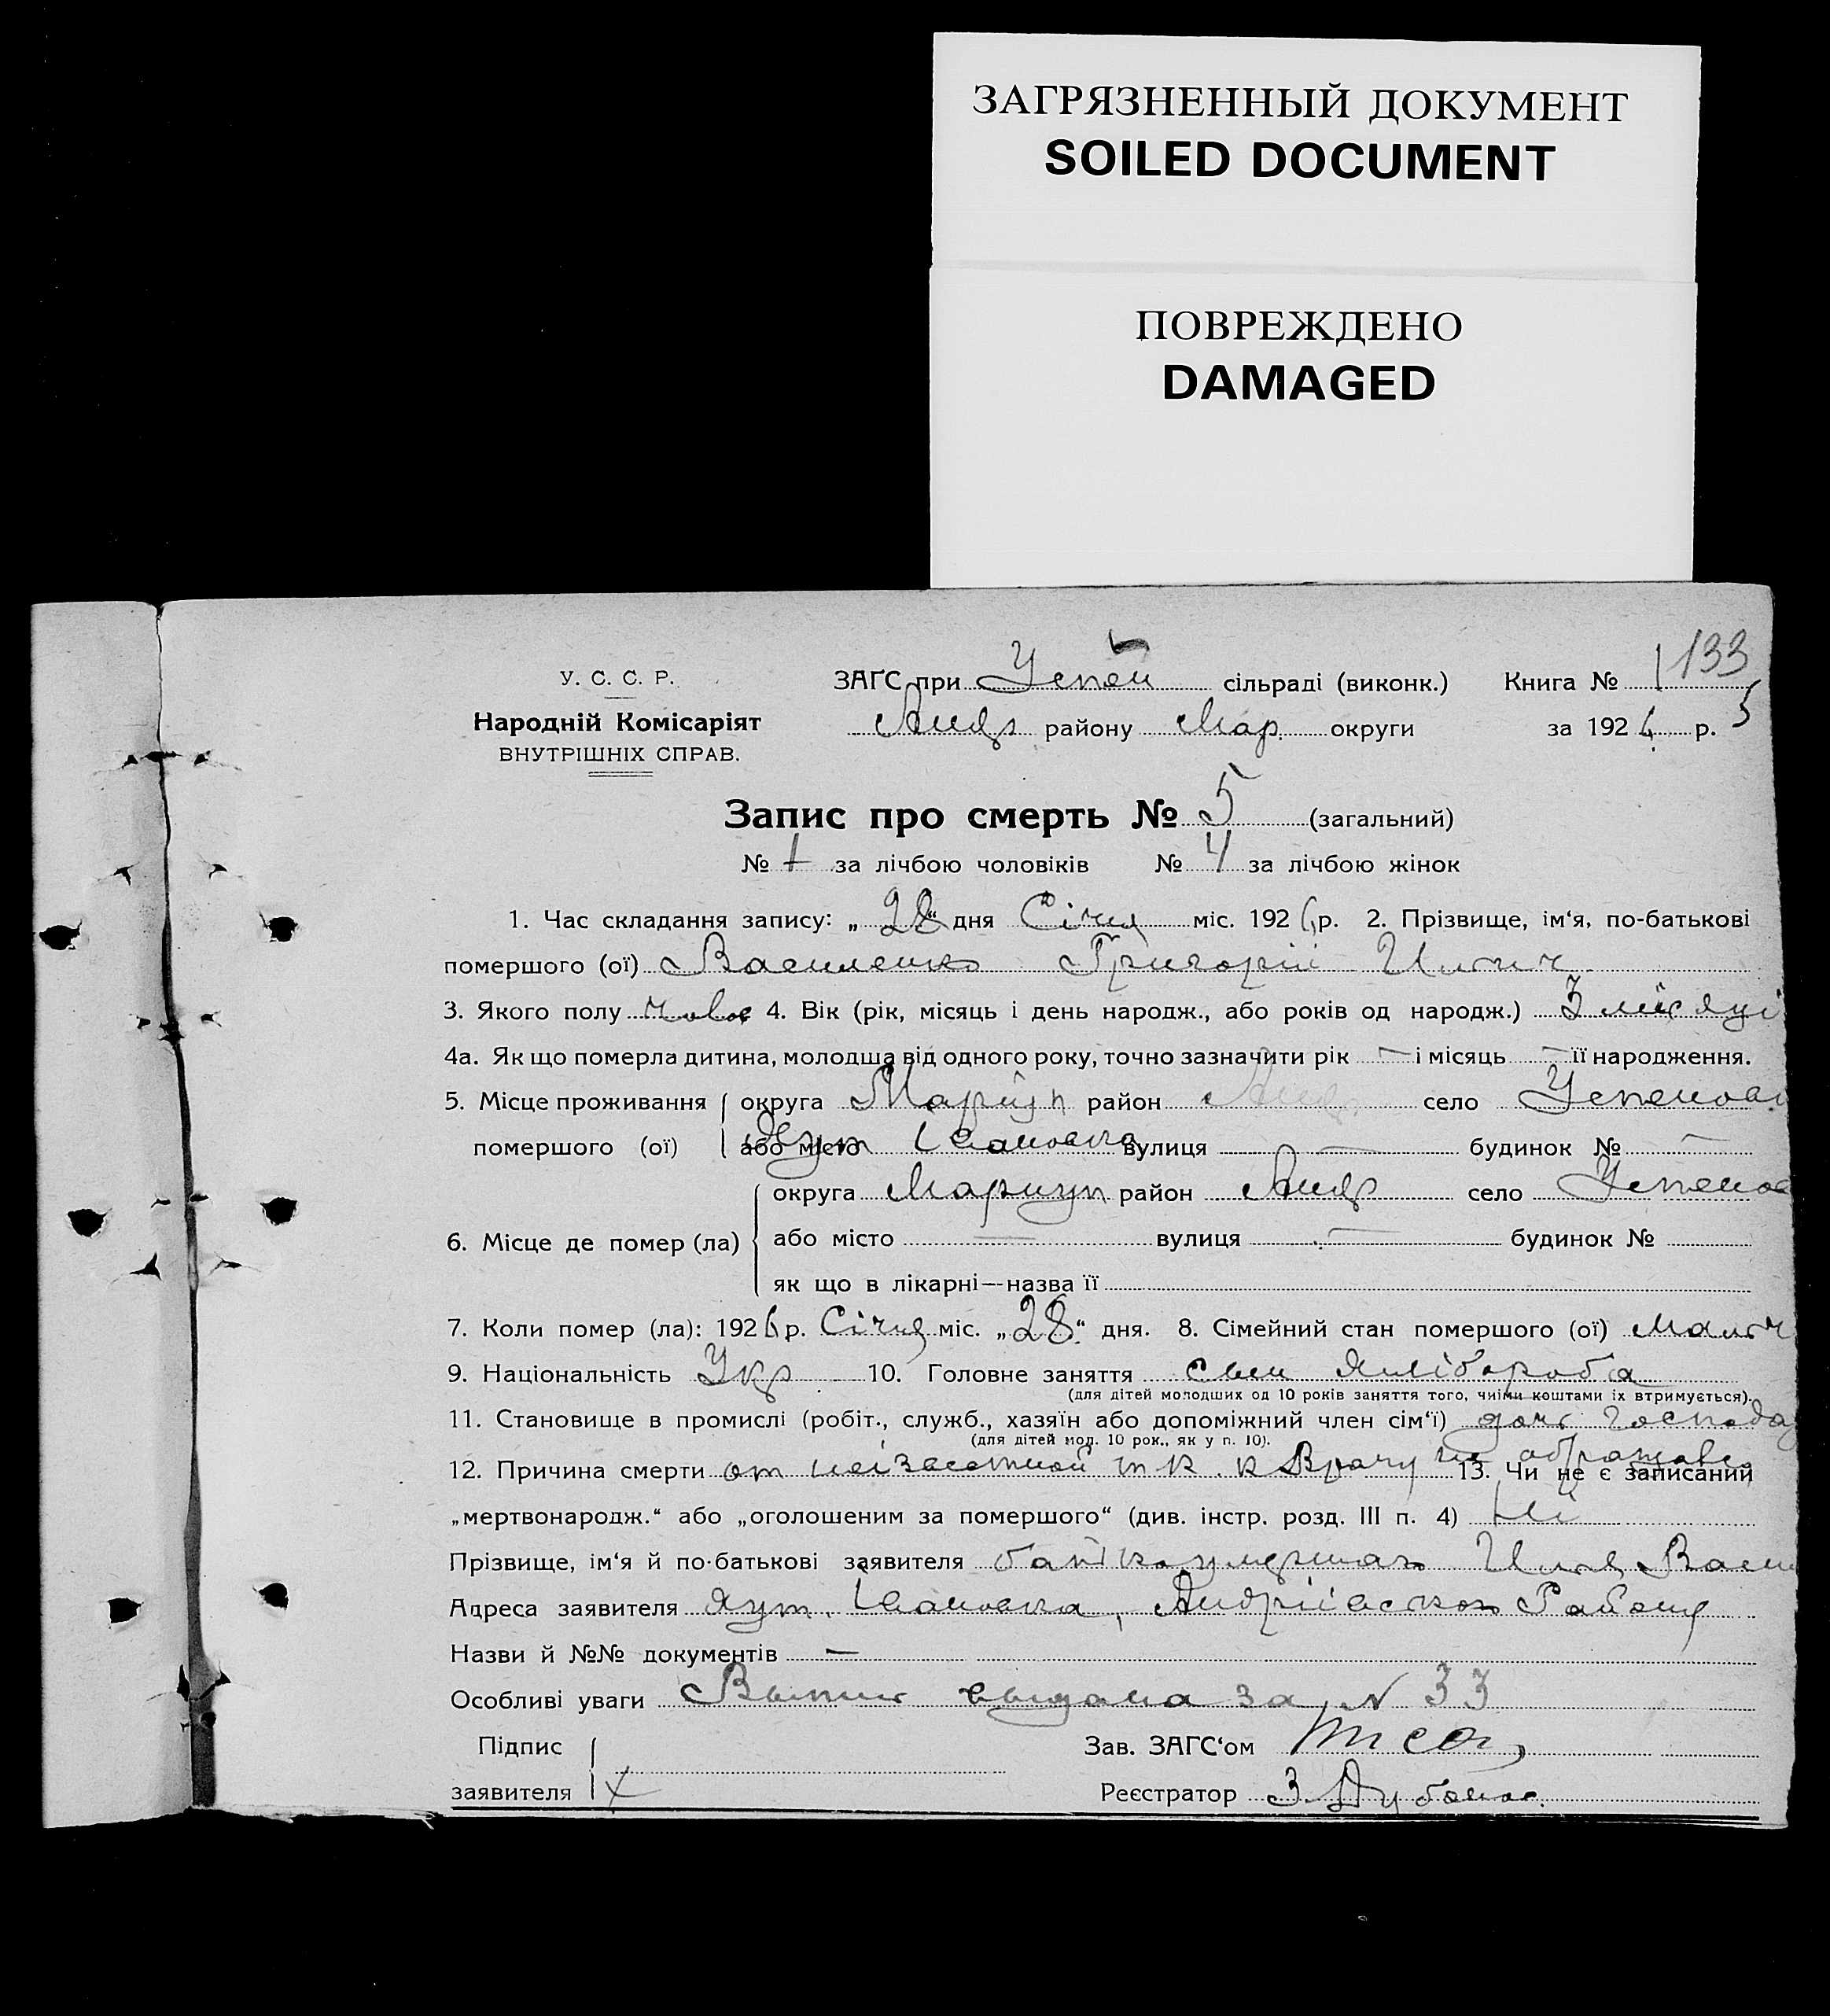 ЗАГРЯЗНЕННЫЙ ДОКУМЕНТ
SOILED DOCUMENT
ПОВРЕЖДЕНО
DAMAGED
133
У. С. С. Р. ЗАГС при Успен сільраді (виконк.) Книга № 1
Народній Комісаріят Андр району Мар. округи за 1926 р.
ВНУТРІШНІХ СПРАВ.
Запис про смерть № 5 (загальний)
№ 1 за лічбою чоловіків № 4 за лічбою жінок
1. Час складання запису: „28“ дня Січня міс. 1926 р. 2. Прізвище, ім‘я, по-батькові
помершого (ої) Василенко Григорій Ильич
3. Якого полу чолов 4. Вік (рік, місяць і день народж., або років од народж.) 3 місяці
4а. Як що померла дитина, молодша від одного року, точно зазначити рік — і місяць — її народження.
5. Місце проживання округа Маріуп район Андр село Успенов
помершого (ої) або місто Хут Івановка вулиця — будинок № —
округа Мариуп район Андр село Успенов
6. Місце де помер (ла) або місто — вулиця — будинок №
як що в лікарні—назва її
7. Коли помер (ла): 1926 р. Січня міс. „28“ дня. 8. Сімейний стан помершого (ої) Мальч
9. Національність Укр 10. Головне заняття сын хлібороба
(для дітей молодших од 10 років заняття того, чиїми коштами їх втримується).
11. Становище в промислі (робіт., служб., хазяїн або допоміжний член сім‘ї) господар
(для дітей мол. 10 рок., як у п. 10).
12. Причина смерти от неізвестной т к к Врачу не обращавс 13. Чи не є записаний
„мертвонародж.“ або „оголошеним за помершого“ (див. інстр. розд. III п. 4) Ні
Прізвище, ім‘я й по-батькові заявителя батько умершаго Илья Васи
Адреса заявителя Хут. Івановка, Андріівского Району
Назви й №№ документів —
Особливі уваги Выпись выдана за N 33
Підпис Зав. ЗАГС‘ом
заявителя Х Реєстратор З. Дубонос.